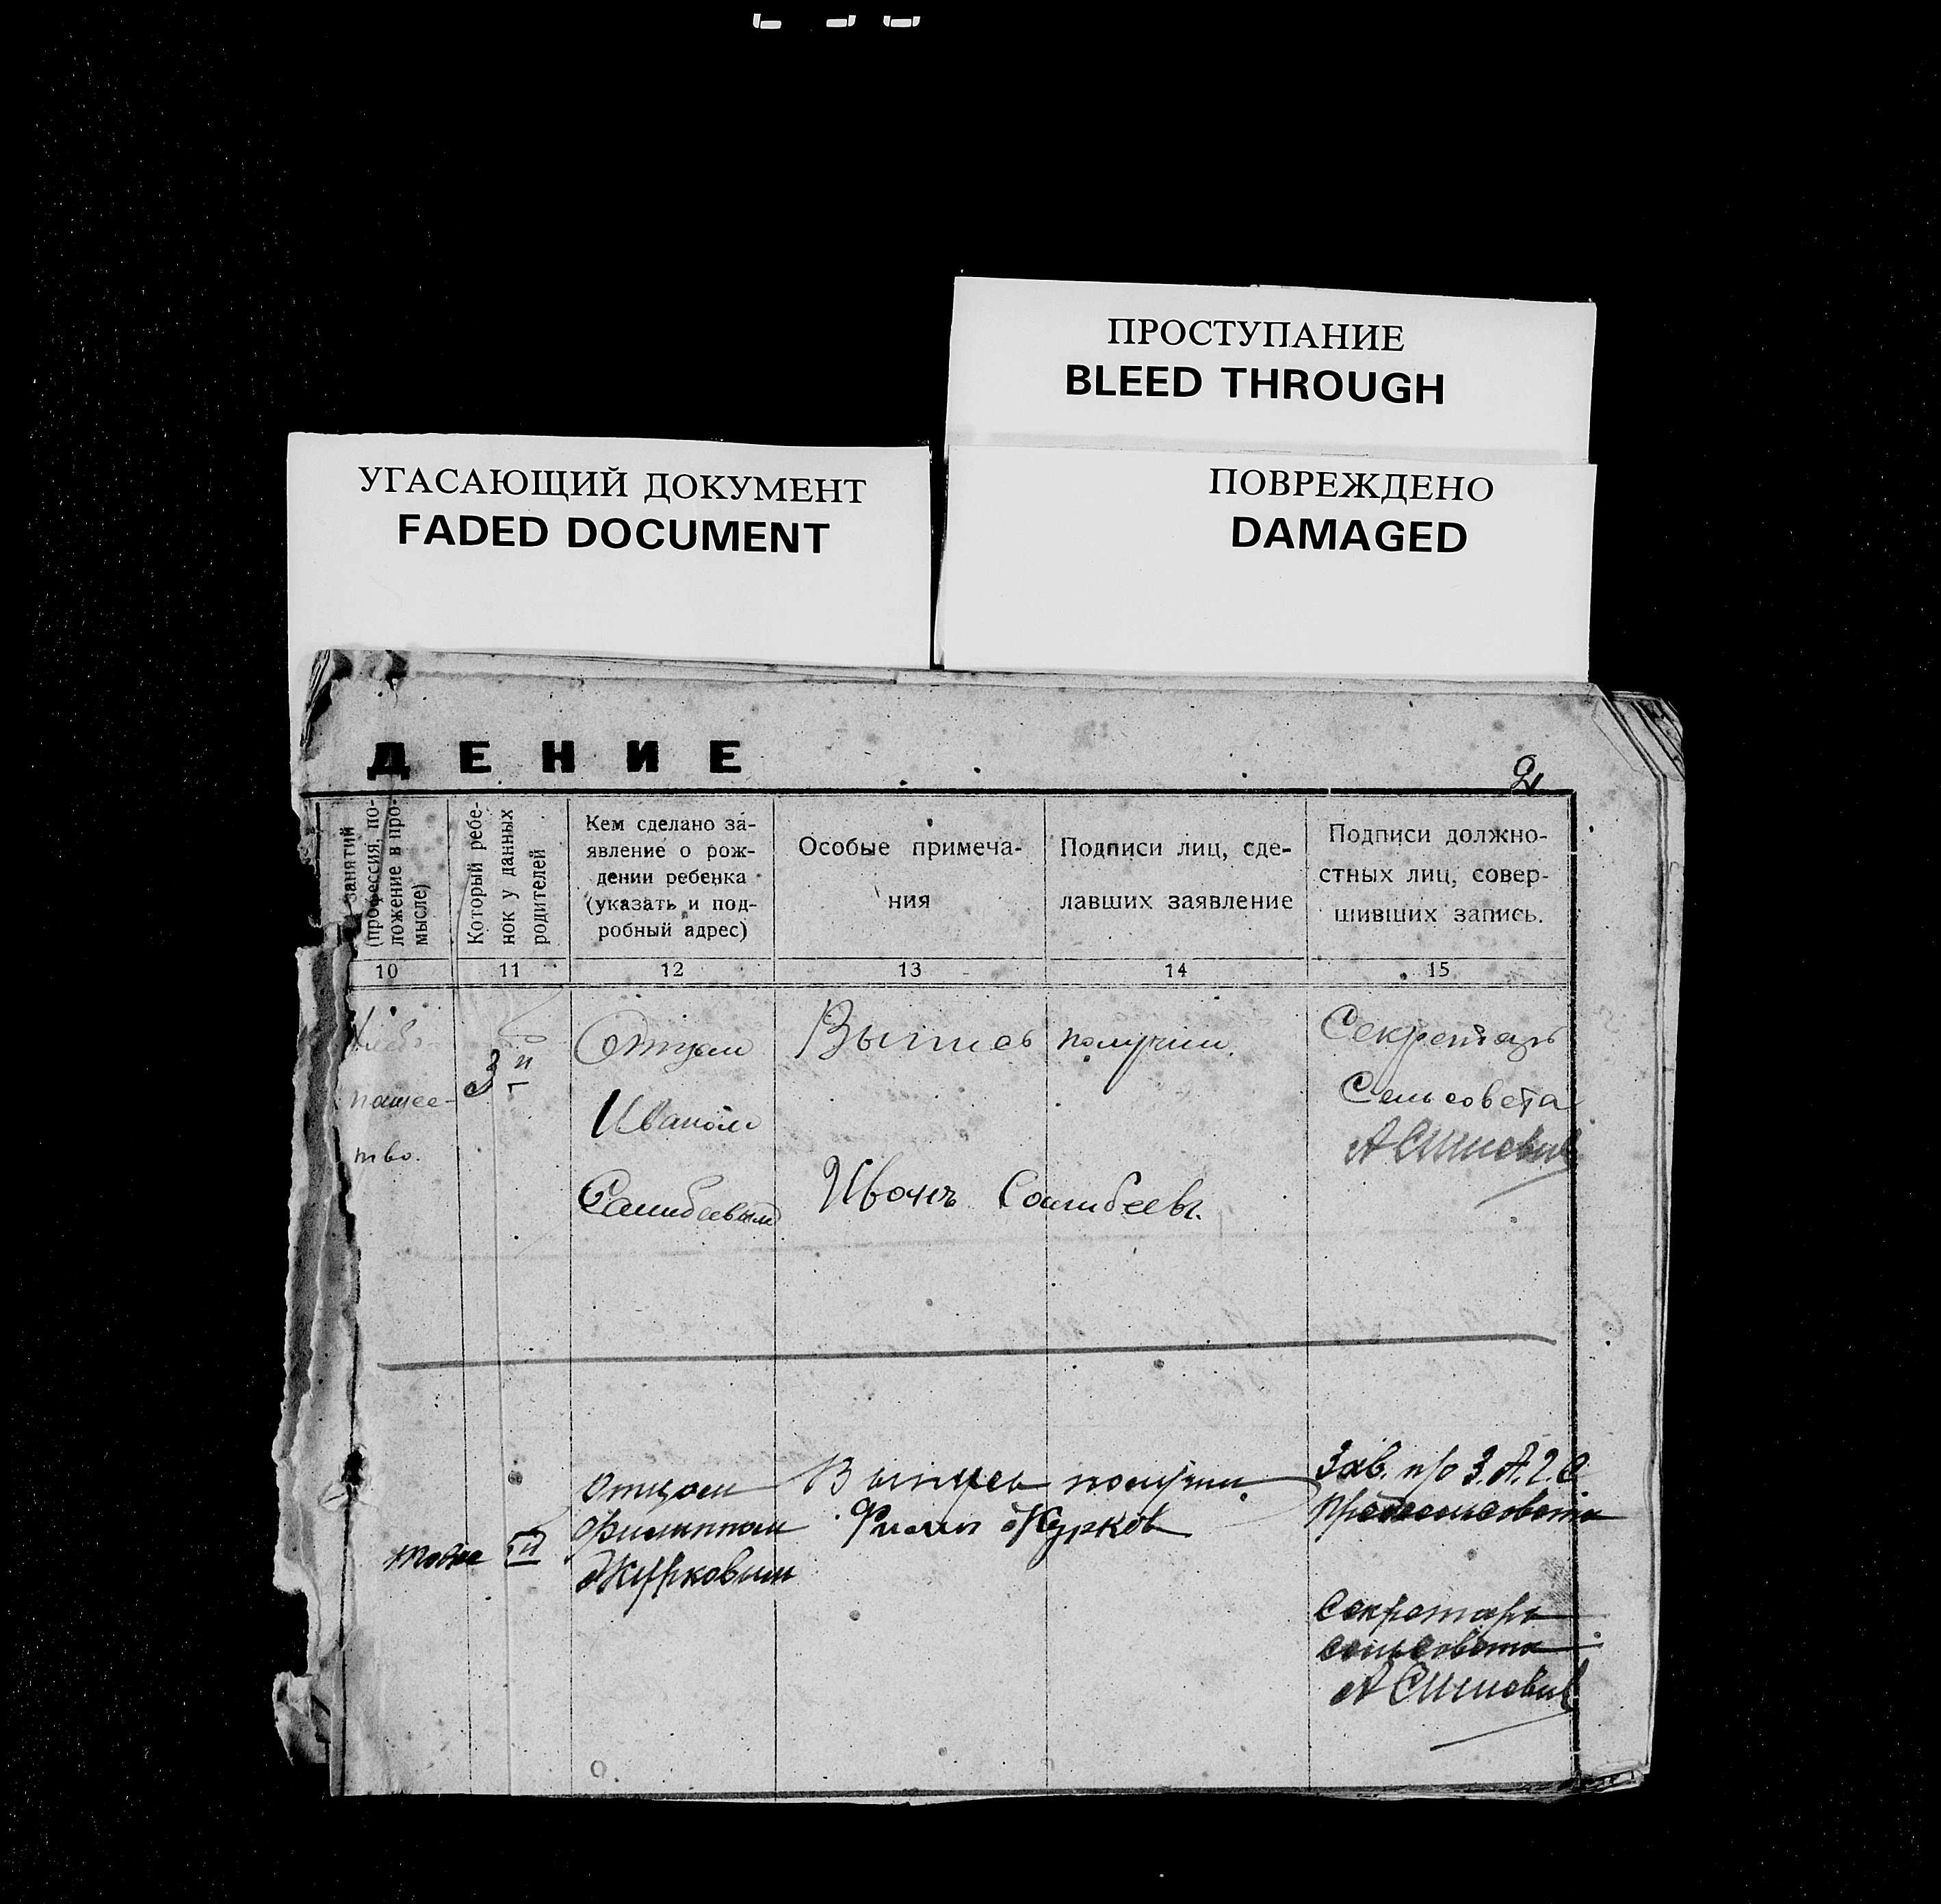 ПРОСТУПАНИЕ
BLEED THROUGH
УГАСАЮЩИЙ ДОКУМЕНТ
FADED DOCUMENT
ПОВРЕЖДЕНО
DAMAGED
ДЕНИЕ
2
занятий
(профессия, по-
ложение в про-
мысле)
Который ребе-
нок у данных
родителей
Кем сделано за-
явление о рож-
дении ребенка
(указать и под-
робный адрес)
Особые примеча-
ния
Подписи лиц, сде-
лавших заявление
Подписи должно-
стных лиц, совер-
шивших запись.
10 11 12 13 14 15
Хлебо-
пашес-
тво.
3й
Отцом
Иваном
Выпись получил.
Иванъ
Секретарь
Сельсовета
Отцом
Филиппом
Журковым
Выпись получил
Филип Журков
Зав. п/о З.А.Г.С.
Секретарь
сельсовета